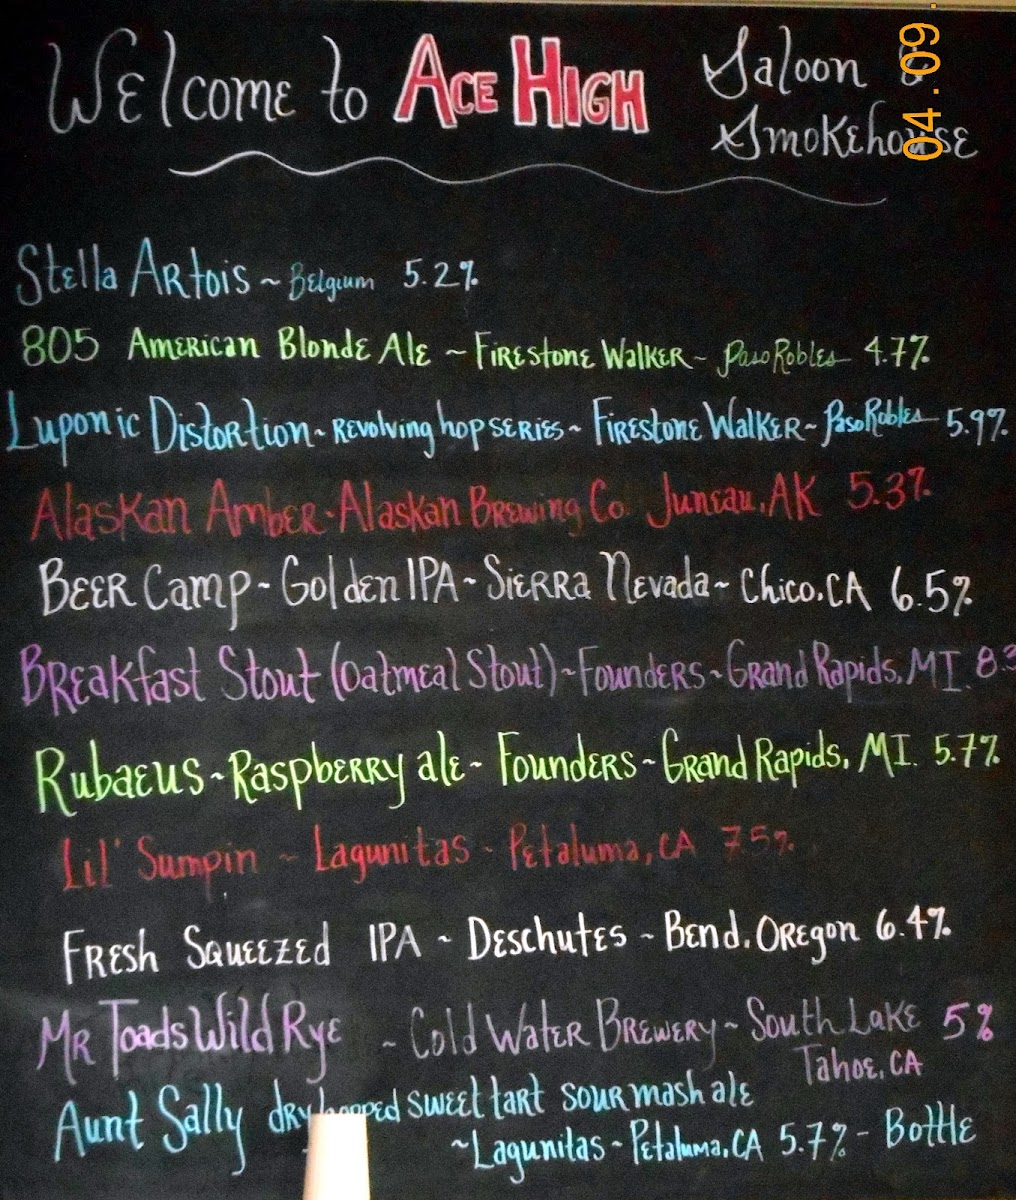 Welcome to ACE HIGH Saloon &
Smokehouse
04.09.
Stella Artois ~ Belgium 5.2%
805 American Blonde Ale ~ Firestone Walker ~ Paso Robles 4.7%
Luponic Distortion ~ Revolving hop series ~ Firestone Walker ~ Paso Robles 5.9%
Alaskan Amber - Alaskan Brewing Co. Juneau, AK 5.3%
Beer Camp ~ Golden IPA ~ Sierra Nevada ~ Chico, CA 6.5%
Breakfast Stout (Oatmeal Stout) ~ Founders ~ Grand Rapids, MI. 8.3
Rubaeus ~ Raspberry ale ~ Founders ~ Grand Rapids, MI. 5.7%
Lil' Sumpin ~ Lagunitas ~ Petaluma, CA 7.5%
Fresh Squeezed IPA ~ Deschutes ~ Bend, Oregon 6.4%
Mr Toads Wild Rye ~ Cold Water Brewery ~ South Lake 5%
Tahoe, CA
Aunt Sally dry hopped sweet tart sour mash ale
~ Lagunitas ~ Petaluma, CA 5.7% - Bottle